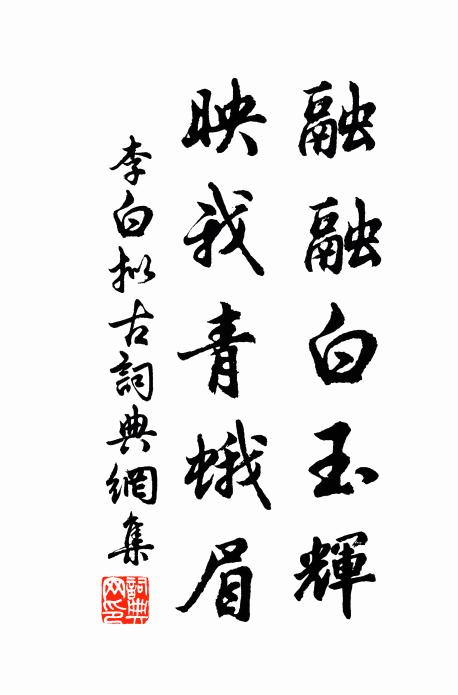 融融白玉輝
映我青蛾眉
李白拟古詞典網集
詞典網印